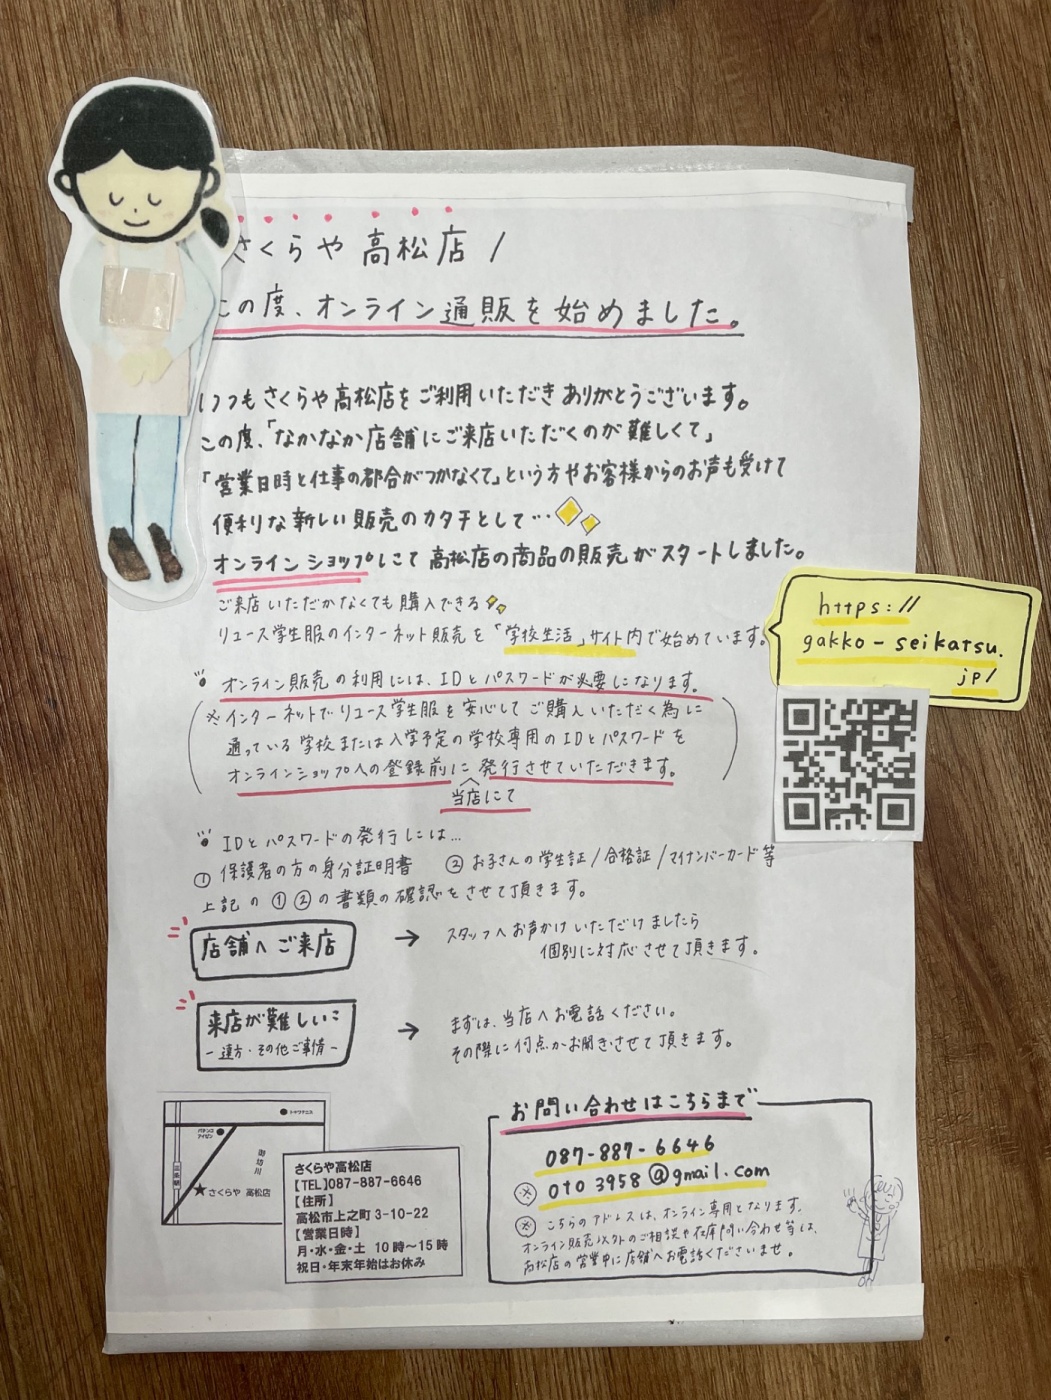 さくらや 高松店 /
この度、オンライン通販を始めました。
いつもさくらや高松店をご利用いただきありがとうございます。
この度、「なかなか店舗にご来店いただくのが難しくて」
「営業日時と仕事の都合がつかなくて」という方やお客様からのお声も受けて
便利な新しい販売のカタチとして…
オンラインショップにて高松店の商品の販売がスタートしました。
ご来店いただかなくても購入できる
リユース学生服のインターネット販売を「学校生活」サイト内で始めています。
https://
gakko-seikatsu.
jp/
オンライン販売の利用には、IDとパスワードが必要になります。
※インターネットでリユース学生服を安心してご購入いただく為に
通っている学校または入学予定の学校専用のIDとパスワードを
オンラインショップへの登録前に発行させていただきます。
当店にて
IDとパスワードの発行には…
① 保護者の方の身分証明書 ② お子さんの学生証/合格証/マイナンバーカード等
上記の①②の書類の確認をさせて頂きます。
店舗へご来店 → スタッフへお声かけいただけましたら
個別に対応させて頂きます。
来店が難しい
-遠方・その他ご事情-
→ まずは、当店へお電話ください。
その際に何点かお聞きさせて頂きます。
トヤマテニス
パチンコ
アイゼン
御坊川
三条駅
さくらや 高松店
さくらや高松店
【TEL】087-887-6646
【住所】
高松市上之町3-10-22
【営業日時】
月・水・金・土 10時〜15時
祝日・年末年始はお休み
お問い合わせはこちらまで
087-887-6646
※ oto3958@gmail.com
※ こちらのアドレスは、オンライン専用となります。
オンライン販売以外のご相談や在庫問い合わせ等は、
高松店の営業中に店舗へお電話くださいませ。